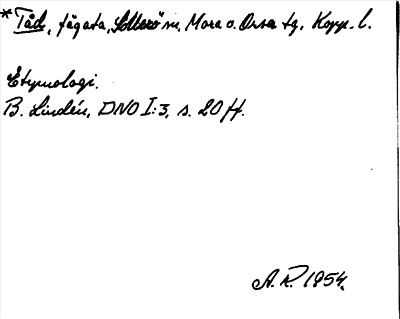 * Tåck, fägata, Sollerö sn, Mora o. Orsa tg. Kopp. l.
Etymologi.
B. Lindén, DNO I:3, s. 20 ff.
A. R. 1954.